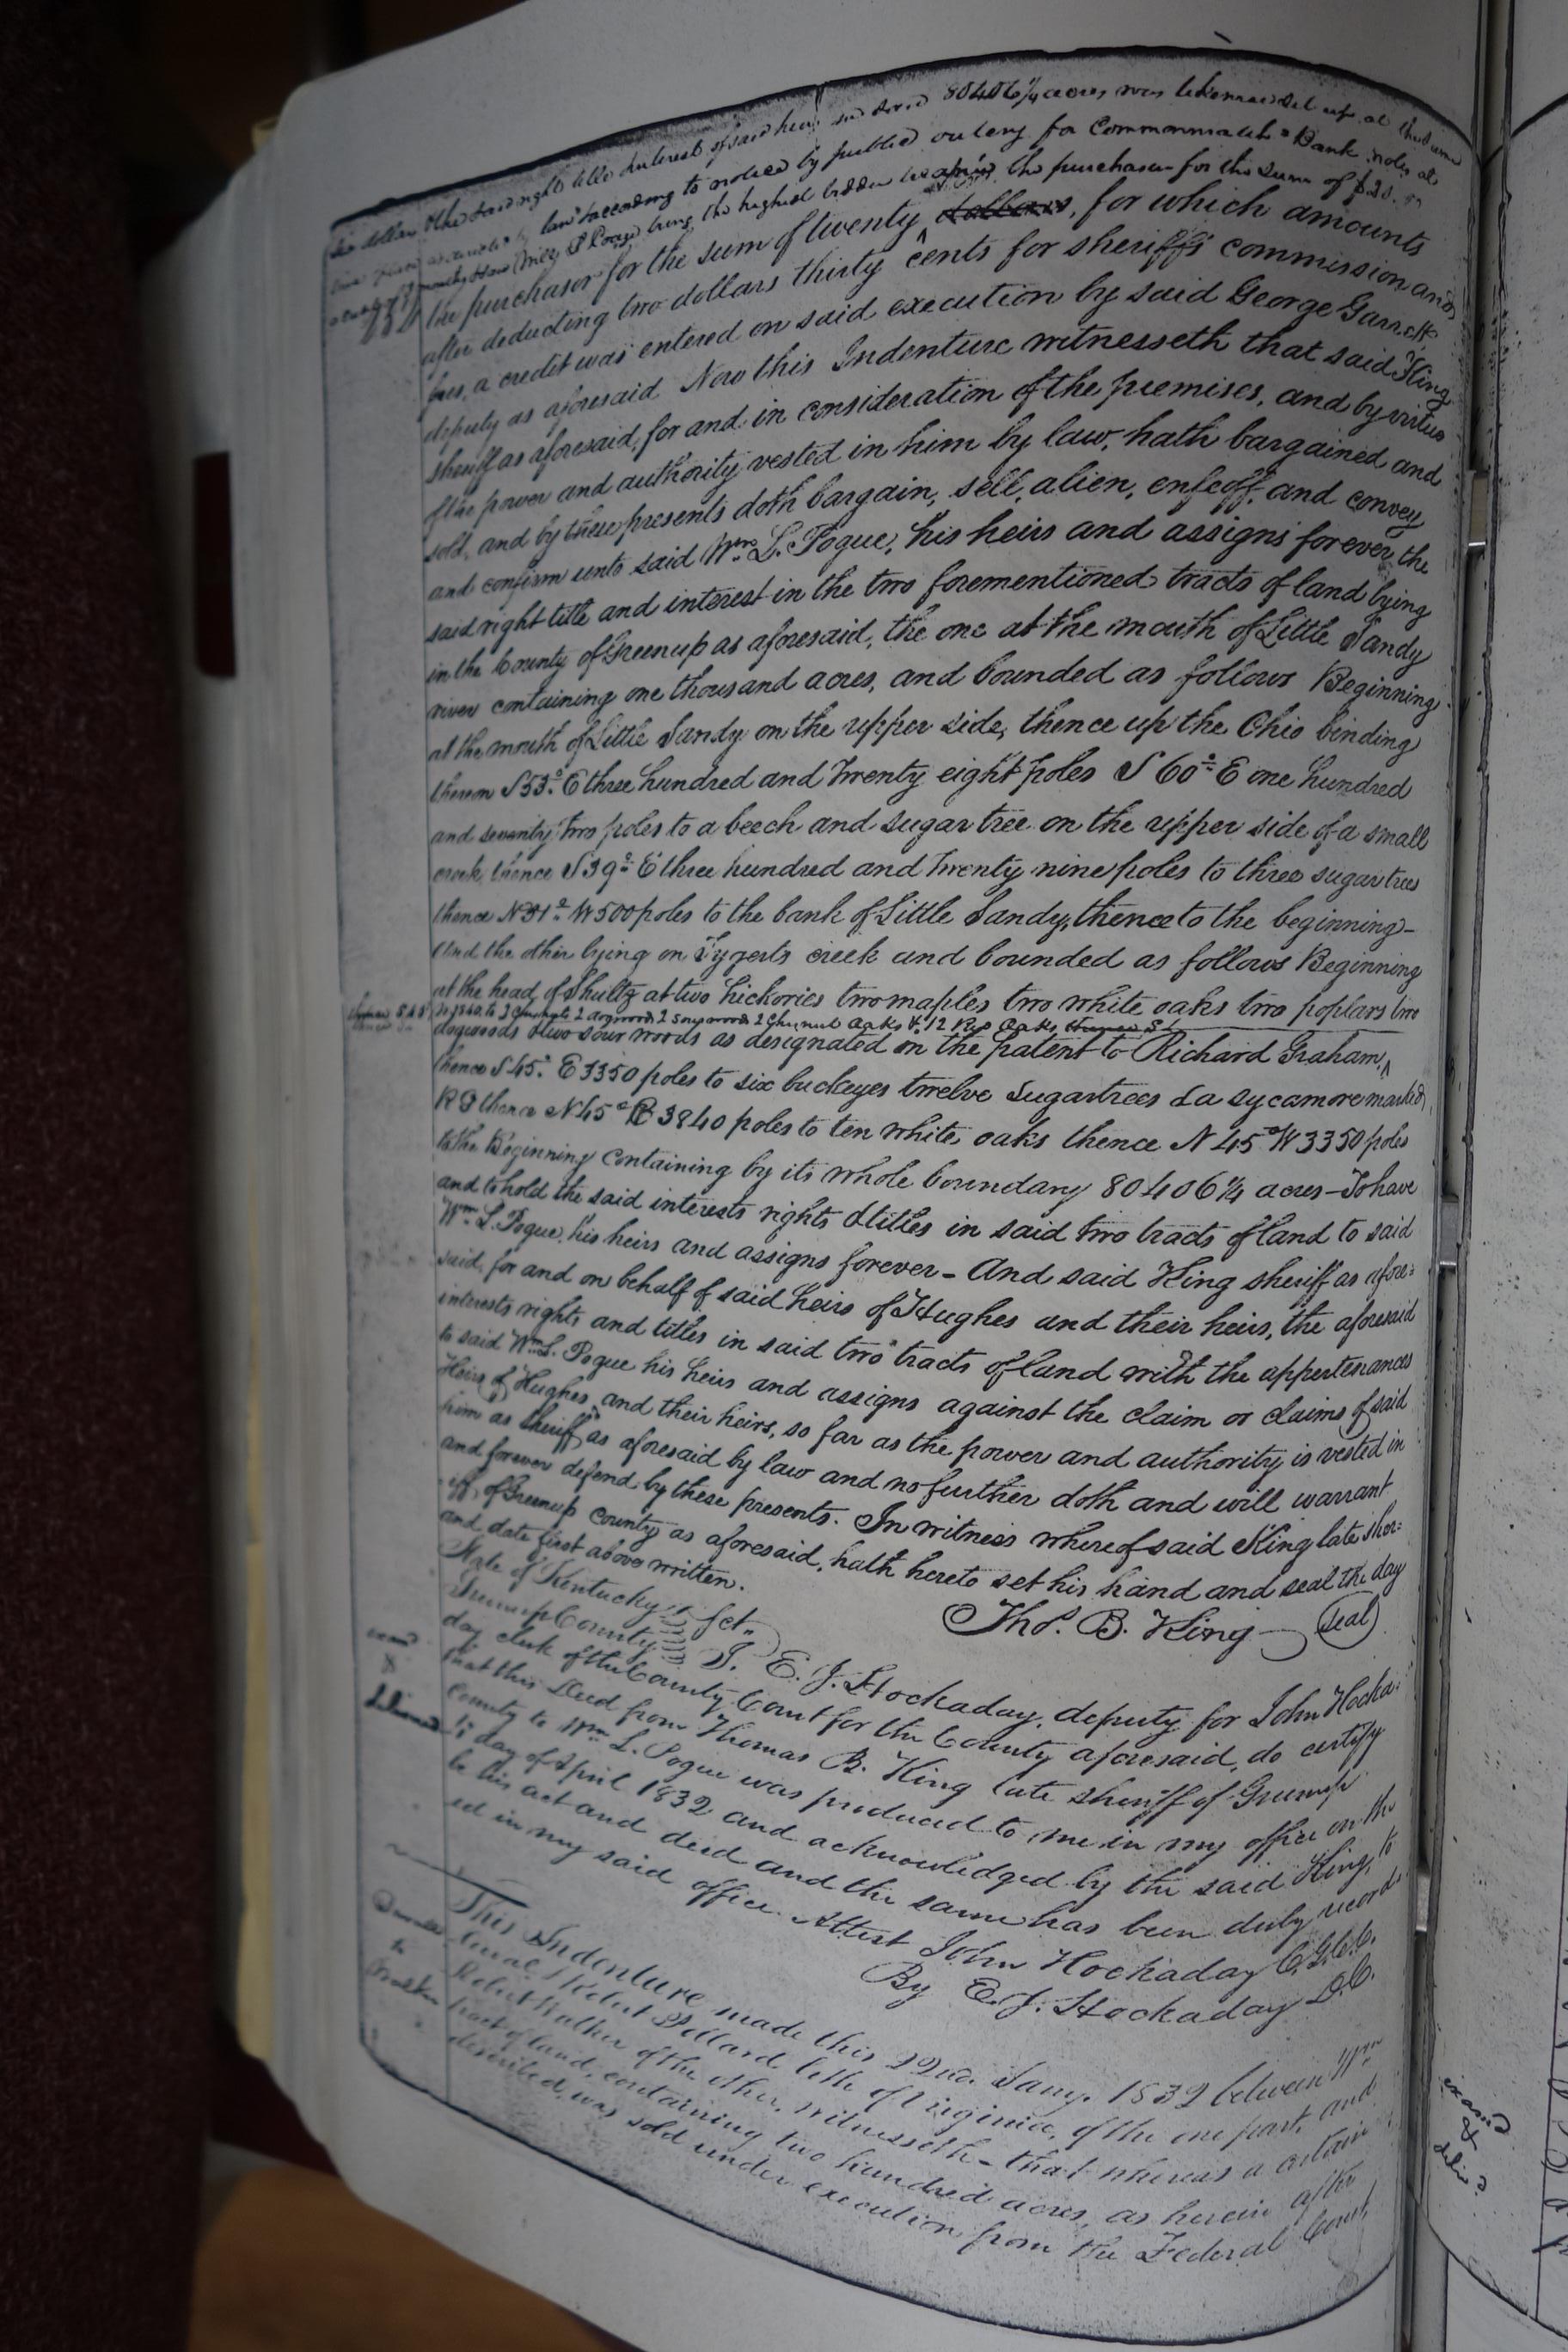 six dollars the said right title & interest of said heirs in said 80406¼ acres was likewise set up at the same
time place as another by law & according to notice by public outcry for Commonwealth's Bank notes at
months, Wm L Pogue being the highest bidder became the purchaser for the sum of $20.
the purchaser for the sum of twenty dollars, for which amounts
after deducting two dollars thirty cents for sheriffs commission and
fees, a credit was entered on said execution by said George Garrett
deputy as aforesaid Now this Indenture witnesseth that said King
sheriff as aforesaid, for and in consideration of the premises, and by virtue
of the power and authority vested in him by law, hath bargained and
sold, and by these presents doth bargain, sell, alien, enfeoff, and convey
and confirm unto said Wm. L. Pogue, his heirs and assigns forever the
said right title and interest in the two forementioned tracts of land lying
in the County of Greenup as aforesaid, the one at the mouth of Little Sandy
river containing one thousand acres, and bounded as follows Beginning
at the mouth of Little Sandy on the upper side, thence up the Ohio binding
thereon S 53° E three hundred and Twenty eight poles S 60° E one hundred
and seventy two poles to a beech and sugar tree on the upper side of a small
creek, thence S 39° E three hundred and Twenty nine poles to three sugar trees
thence N 81° W 500 poles to the bank of Little Sandy, thence to the beginning-
And the other lying on Tygerts creek and bounded as follows Beginning
at the head of Shultz at two hickories two maples two white oaks two poplars two
2 dogwoods 2 sourwoods 2 Chesnut oaks & 12 Red Oaks thence S
dogwoods & two sour woods as designated in the patent to Richard Graham,
thence S 45° E 3350 poles to six buckeyes twelve Sugartrees & a sycamore marked
R G thence N 45° E 3840 poles to ten white oaks thence N 45° W 3350 poles
to the Beginning containing by its whole boundary 80406¼ acres - To have
and to hold the said interests rights & titles in said two tracts of land to said
Wm. L. Pogue, his heirs and assigns forever - And said King sheriff as afore=
said, for and on behalf of said heirs of Hughes and their heirs, the aforesaid
interests rights and titles in said two tracts of land with the appertenances
to said Wm. L. Pogue his heirs and assigns against the claim or claims of said
Heirs of Hughes, and their heirs, so far as the power and authority is vested in
him as sheriff as aforesaid by law and no further doth and will warrant
and forever defend by these presents. In witness whereof said King late sher=
iff, of Greenup county as aforesaid, hath hereto set his hand and seal the day
and date first above written.
Tho. B. King (Seal)
State of Kentucky
Greenup County Sct.
I, E. J. Hockaday, deputy for John Hocka=
day clerk of the County Court for the County aforesaid, do certify
that this Deed from Thomas B. King late sheriff of Greenup
County to Wm. L. Pogue was produced to me in my office on the
day of April 1832 and acknowledged by the said King, to
be his act and deed and the same has been duly record=
ed in my said office. Attest John Hockaday C.G.C.C.
By E. J. Hockaday D.C.
exam'd
&
delivered
This Indenture made this 22nd. Jany. 1832 between Wm
& Robert Pollard both of Virginia, of the one part, and
Robert Walker of the other, witnesseth - that whereas a certain
tract of land, containing two hundred acres, as herein after
described, was sold under execution from the Federal Court,
to
Walker
exam'd
&